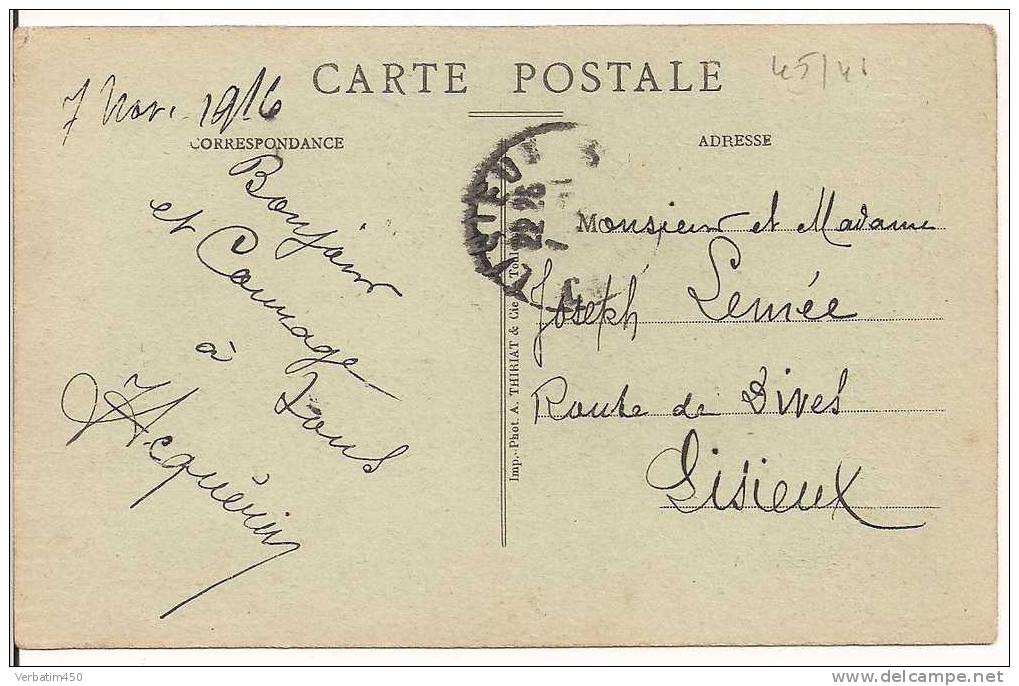 CARTE POSTALE
45/41
7 Nov. 1916
CORRESPONDANCE
ADRESSE
Bonjour
et Courage
à Tous
LISIEUX
22 26
Monsieur et Madame
Joseph Lemée
Route de Dives
Lisieux
Imp.-Phot. A. THIRIAT & Cie
Verbatim450
delcampe.net